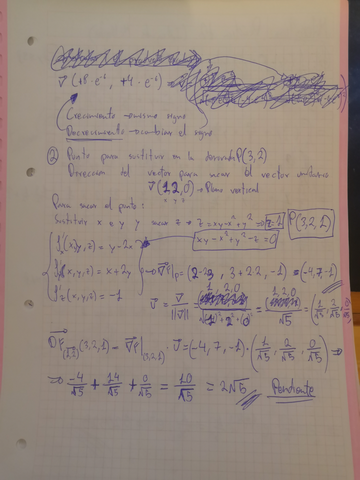 ∇(+8·e⁻¹, +4·e⁻²)
Crecimiento → mismo signo
Decrecimiento → cambiar el signo
② Punto para sustituir en la derivada P(3,2)
Dirección el vector para sacar el vector unitario
V(1,2,0) → Plano vertical
x y z
Para sacar el punto:
Sustituir x e y y sacar z → z = xy-x²+y² → z=1 P(3,2,1)
f'x(x,y,z) = y-2x xy-x²+y²-z=0
f'y(x,y,z) = x+2y → ∇f|p = (2-2·3, 3+2·2, -1) = (-4,7,-1)
f'z(x,y,z) = -1
U = V/||V|| = 1,2,0/√1²+2²+0² = (1,2,0)/√5 = (1/√5, 2/√5, 0/√5)
(3,2,1) = ∇f|(3,2,1) · U = (-4,7,-1) · (1/√5, 2/√5, 0/√5) ⇒
⇒ -4/√5 + 14/√5 + 0/√5 = 10/√5 = 2√5 Pendiente